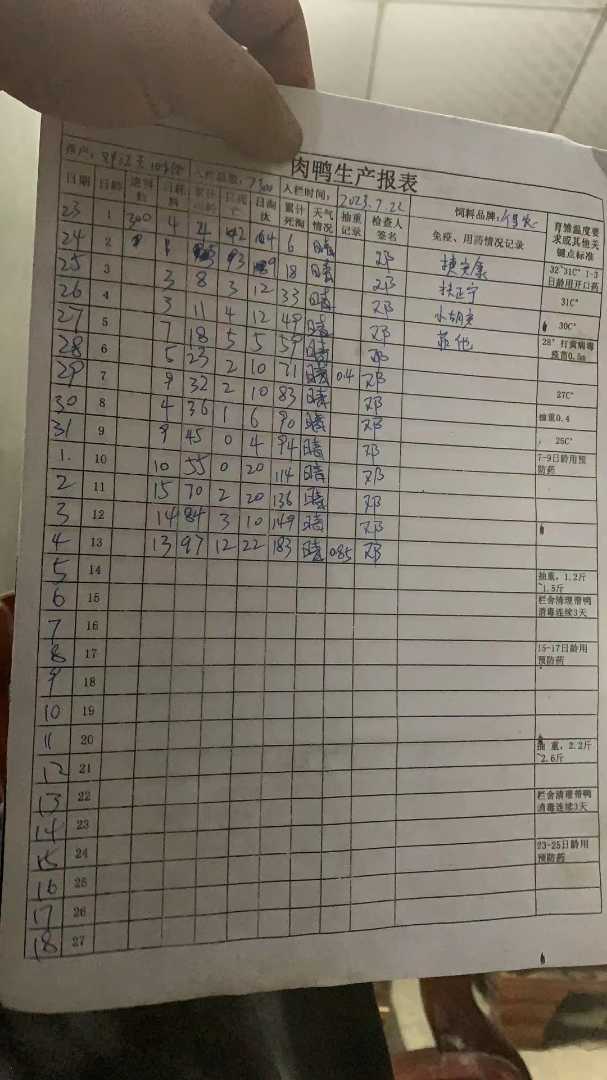 肉鸭生产报表
入栏总数：7300 入栏时间：2023.7.22 饲料品牌：
日期 日龄 进料数 日耗料 累计 日死亡 日淘汰 累计死淘 天气情况 抽重记录 检查人签名 免疫、用药情况记录 育雏温度要求或其他关键点标准
23 1 300 4 4 2 4 6 晴 邓 32~31C° 1-3日龄用开口药
24 2 3 9 18 晴 邓 扶正宁 31C°
25 3 3 8 3 12 33 晴 邓 30C°
26 4 3 11 4 12 49 晴 邓 28° 打黄病毒疫苗0.5m
27 5 7 18 5 5 59 晴 邓
28 6 5 23 2 10 71 晴 0.4 邓 27C°
29 7 9 32 2 10 83 晴 邓 抽重0.4
30 8 4 36 1 6 90 晴 邓 25C°
31 9 9 45 0 4 94 晴 邓 7-9日龄用预防药
1. 10 10 55 0 20 114 晴 邓
2 11 15 70 2 20 136 晴 邓
3 12 14 84 3 10 149 晴 邓
4 13 13 97 12 22 183 晴 085 邓
5 14 抽重，1.2斤~1.5斤
6 15 栏舍清理带鸭消毒连续3天
7 16
8 17 15-17日龄用预防药
9 18
10 19
11 20 抽 重，2.2斤~2.6斤
12 21
13 22 栏舍清理带鸭消毒连续3天
14 23
15 24 23-25日龄用预防药
16 25
17 26
18 27